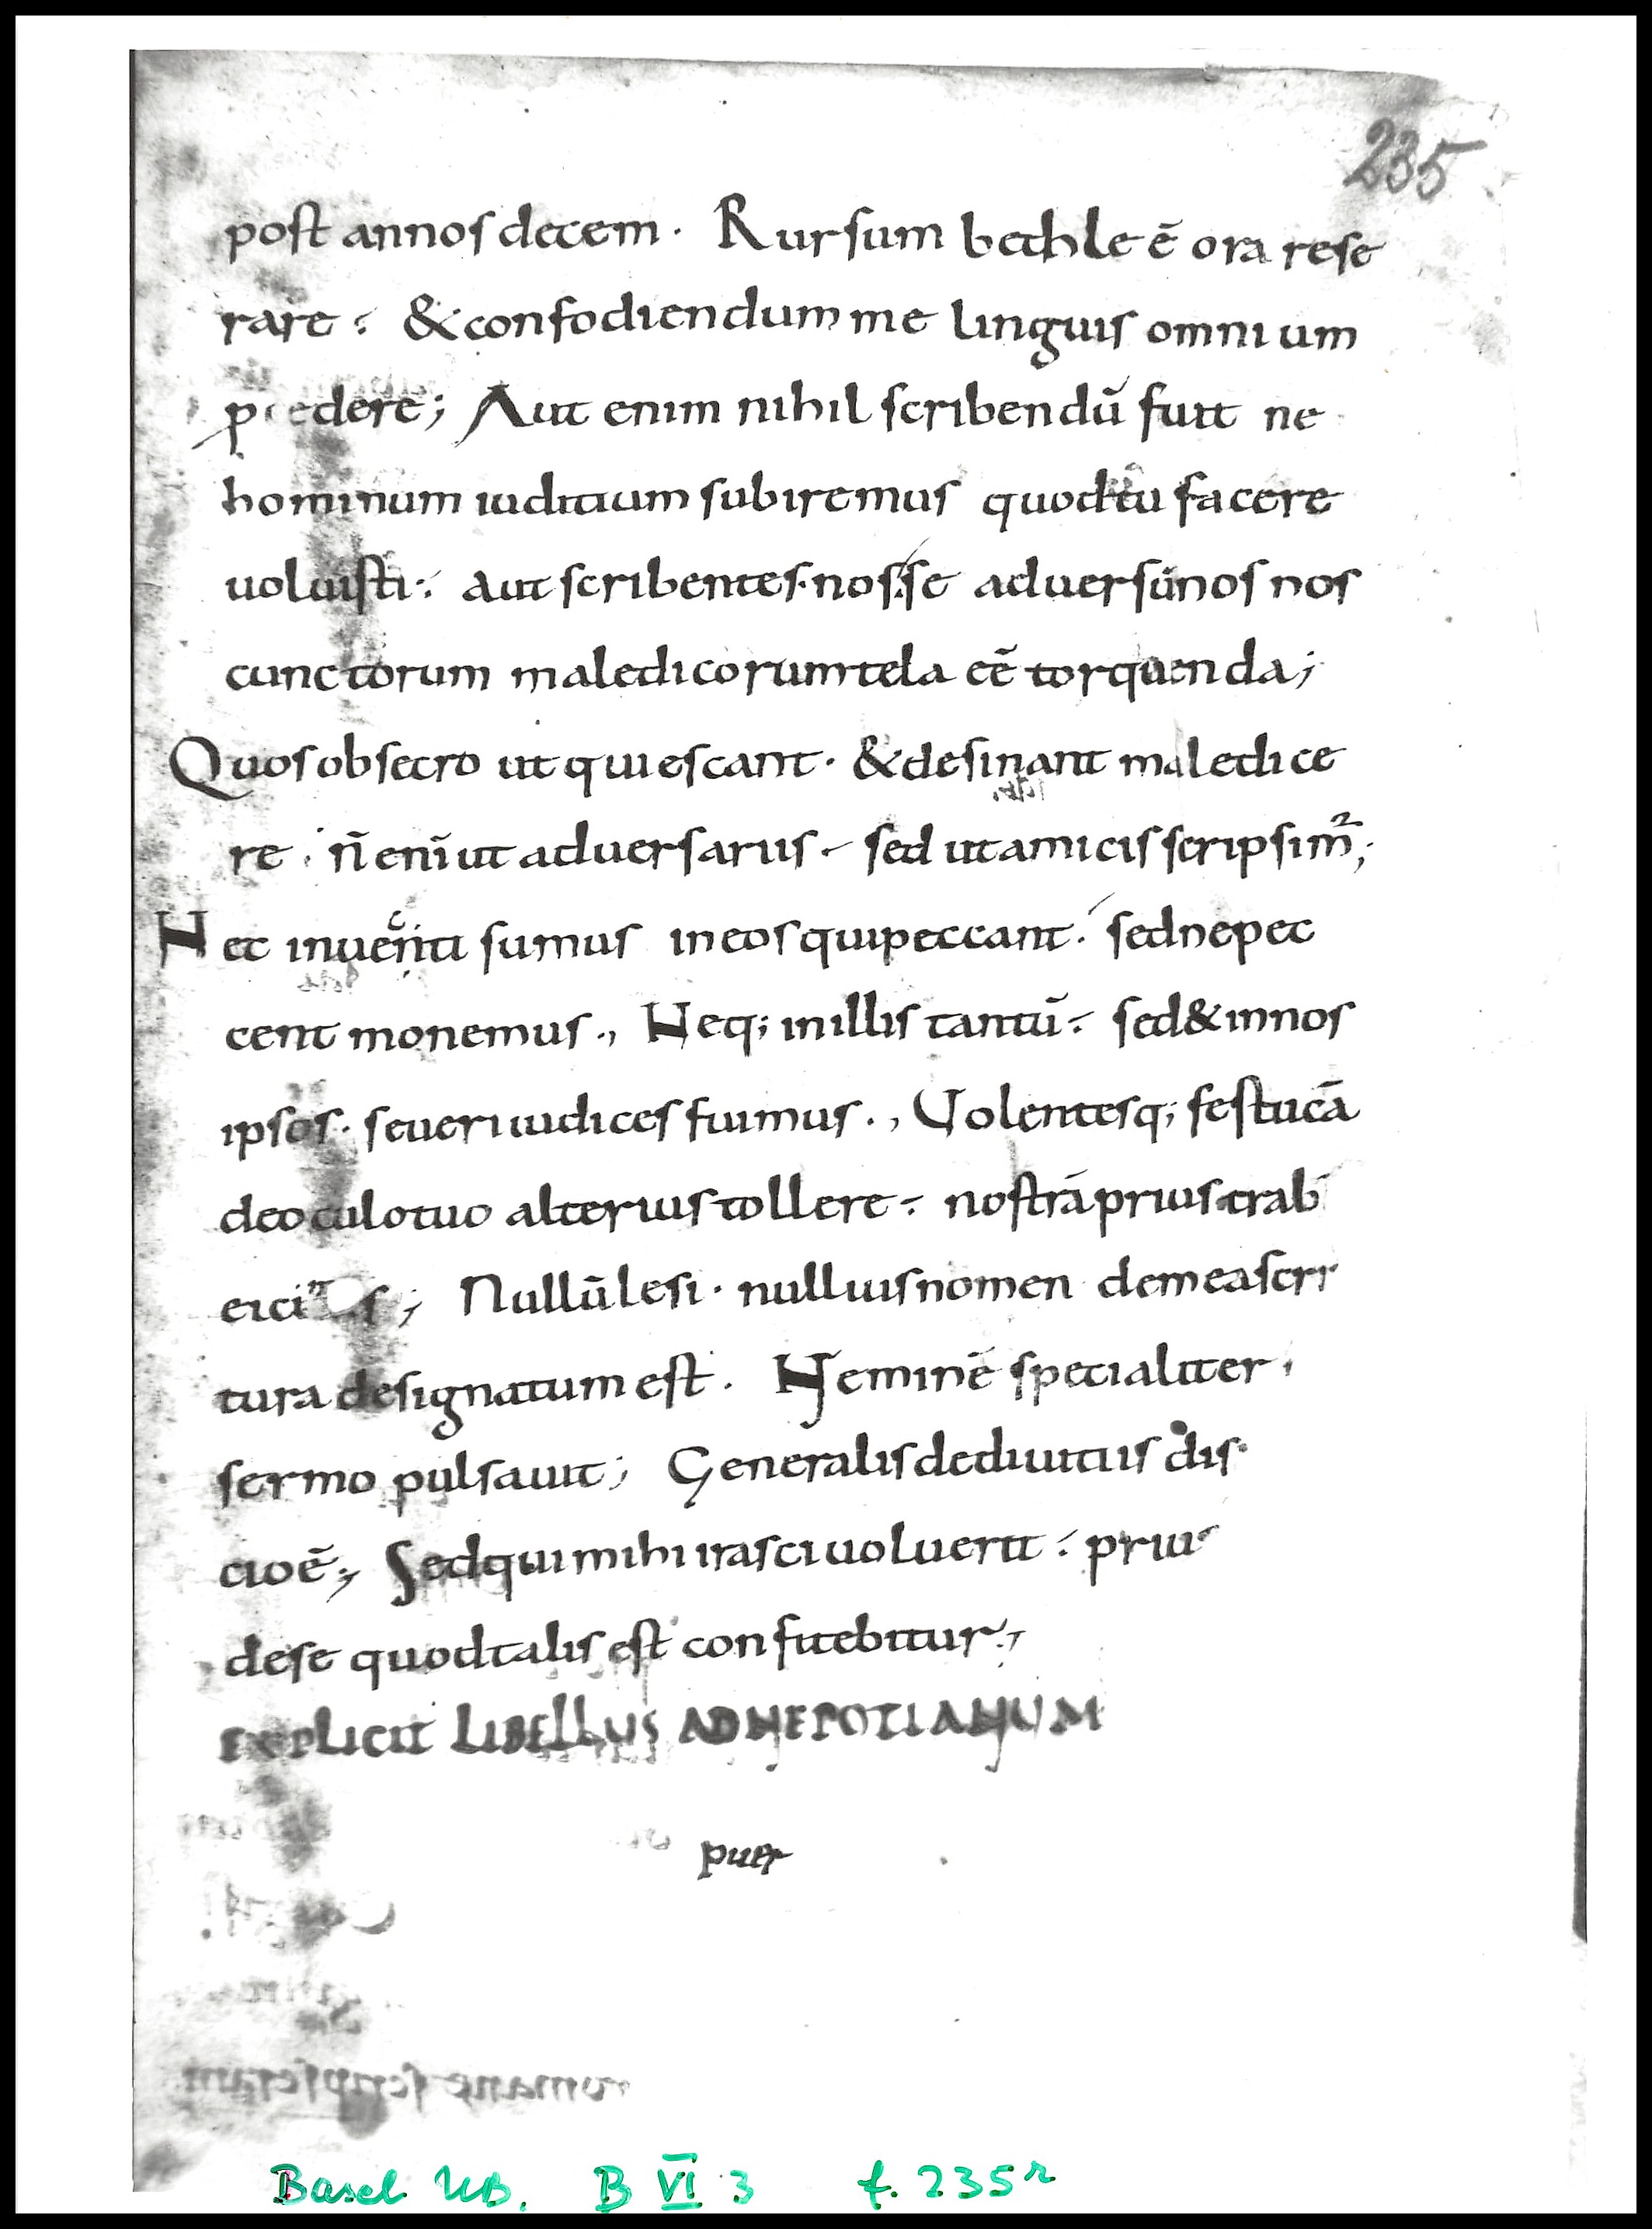 235
post annos decem. Rursum bethleē ora rese
rare: & confodiendum me linguis omnium
pdere; Aut enim nihil scribendū fuit ne
hominum iuditium subiremus quod tu facere
uoluisti: aut scribentes nosse aduersū nos nos
cunctorum maledicorum tela eē torquenda;
Quos obsecro ut quiescant. & desinant maledice
re. n̄ enī ut aduersariis sed ut amicis scripsim̄;
Nec inuecti sumus in eos qui peccant: sed ne pec
cent monemus., Neq; in illis tantū: sed & in nos
ipsos. seueri iudices fuimus., Volentesq; festucā
de oculo tuo alterius tollere: nostrā prius trab
eici s; Nullū lesi. nullius nomen de mea scri
tura designatum est. Neminē specialiter.
sermo pulsauit; Generalis de diuitiis dis
cio ē; Sed qui mihi irasci uoluerit: prius
de se quod talis est confitebitur.,
EXPLICIT LIBELLUS AD NEPOTIANUM
puer
Basel UB. B VI 3 f. 235r